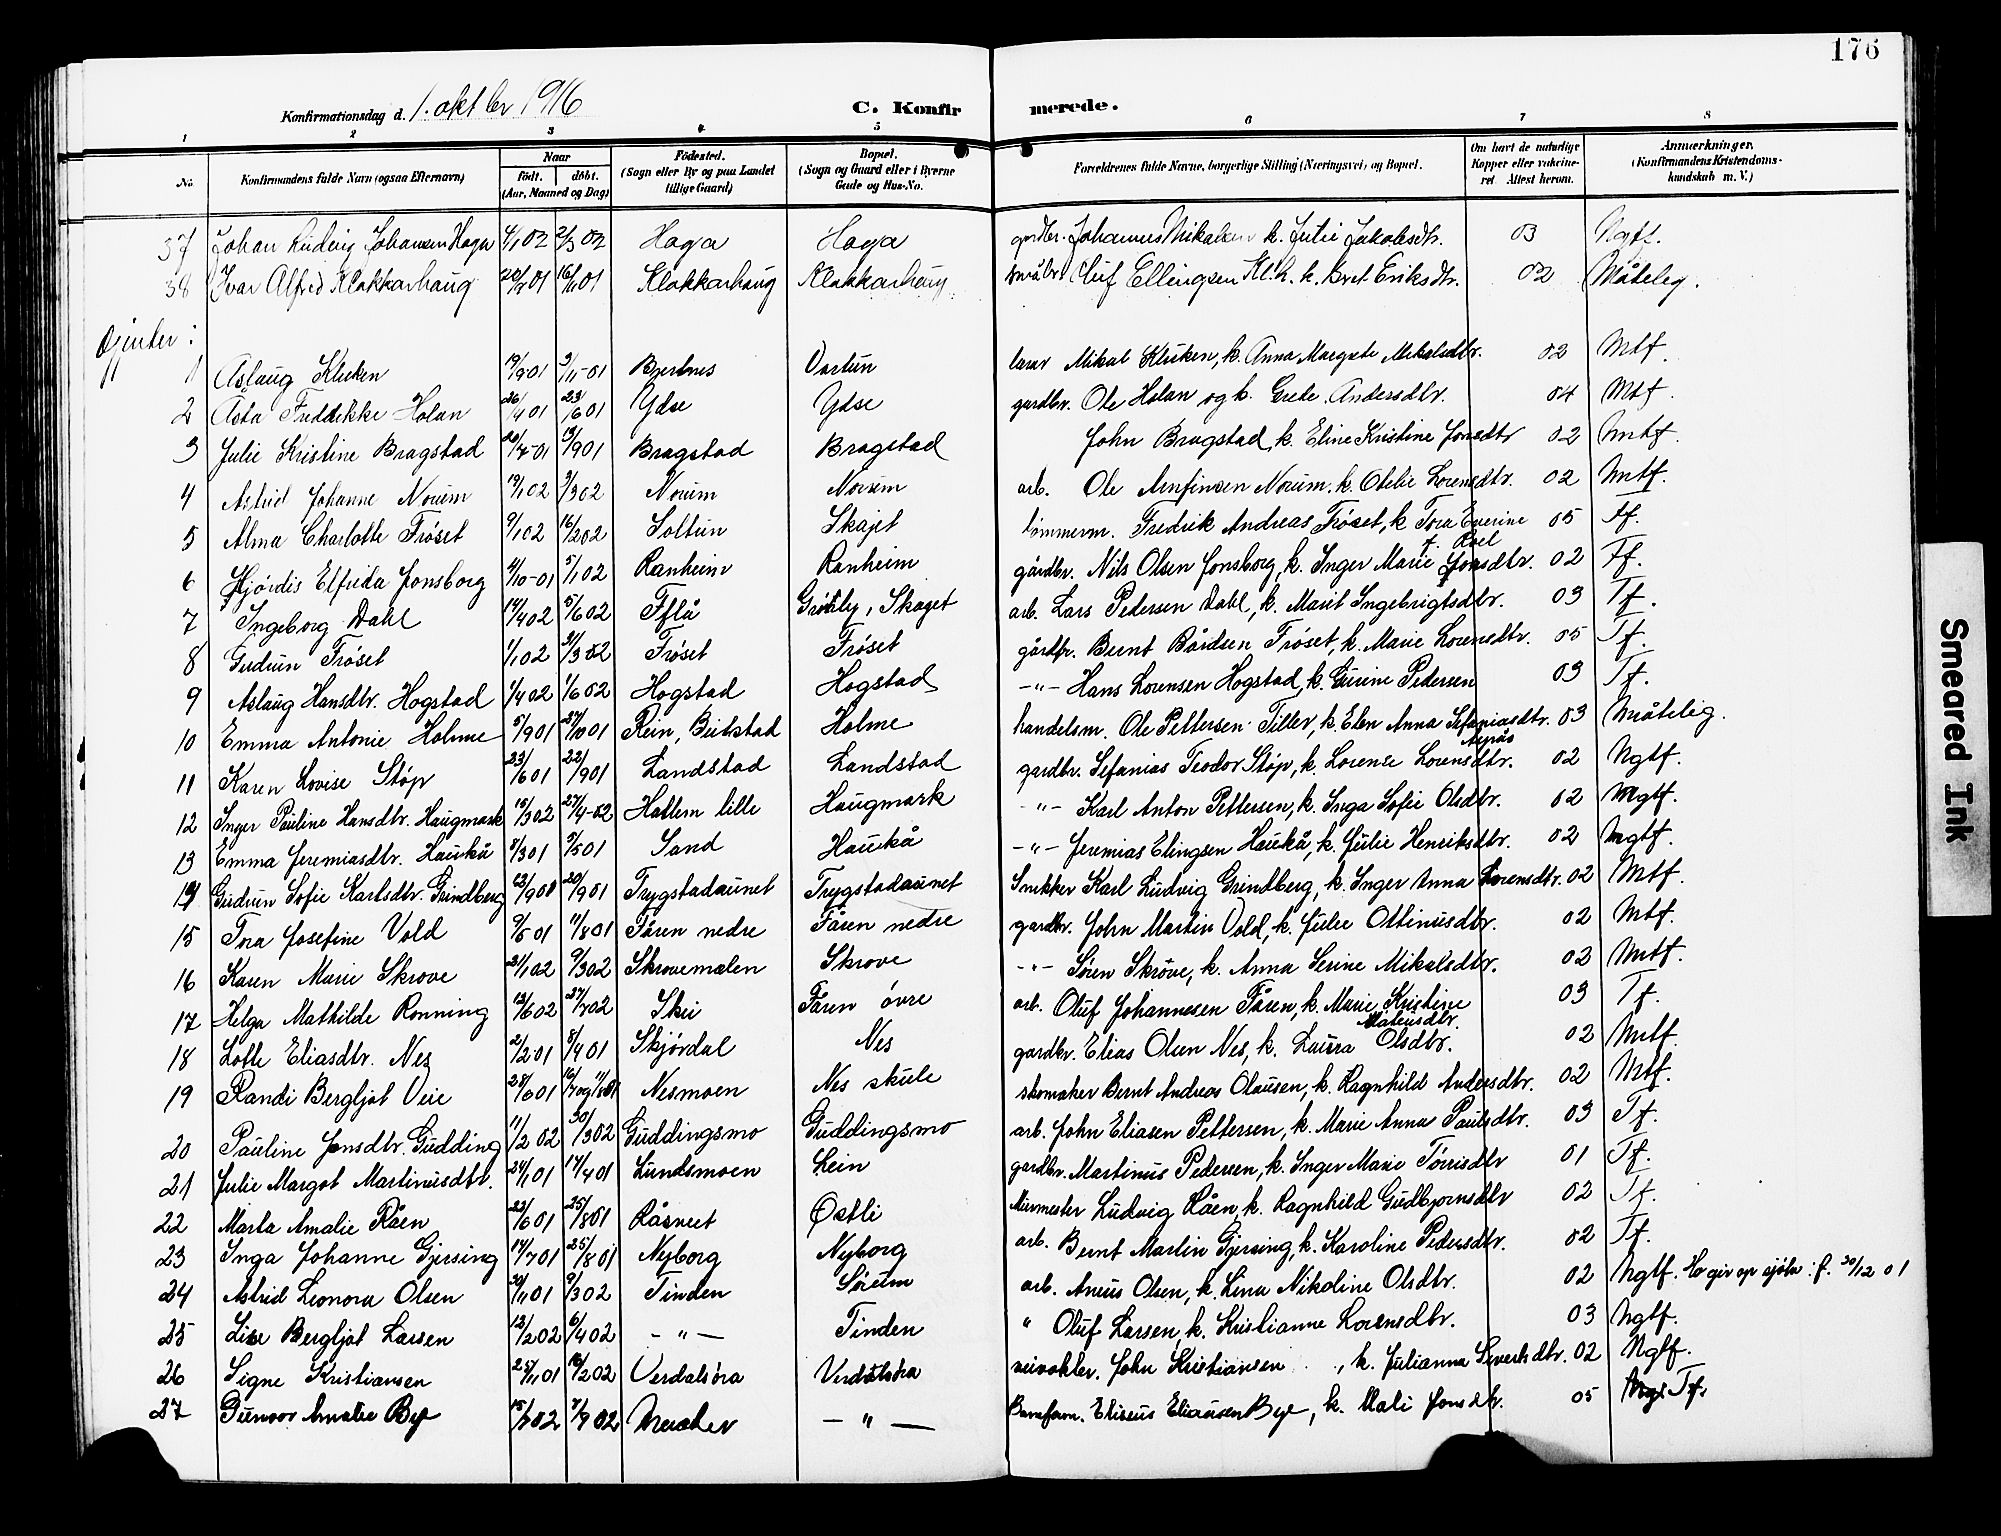 176
Konfirmationsdag d. 1. oktbr 1916 C. Konfirmerede.
1 2 3 4 5 6 7 8
No. Konfirmandens fulde Navn (ogsaa Efternavn) Naar födt. döbt. (Aar, Maaned og Dag) Födested. (Sogn eller By og paa Landet tillige Gaard) Bopæl. (Sogn og Gaard eller i Byerne Gade og Hus-No. Forældrenes fulde Navne, borgerlige Stilling (Næringsvei) og Bopæl. Om havt de naturlige Kopper eller vakcineret. Attest herom. Anmærkninger. (Konfirmandens Kristendomskundskab m. V.)
37 Johan Ludvig Johansen Haga 4/1 02 2/3 02 Haga Haga gardbr. Johannes Mikalsen k. Julie Jakobsdtr. 03 Ngtf.
38 Ivar Alfred Klokkarhaug 01 01 Klokkarhaug Klokkarhaug Oluf Ellingsen Kl.h. k. Beret Eriksdtr. 02 Måteleg.
Gjenter:
1 Aslaug Kluken 19/9 01 3/11-01 Bjertnes Vartun lærar Mikal Kluken, k. Anna Margrete Mikalsdtr. 02 Mtf.
2 Asta Fredrikke Holan 26/4 01 23/6 01 Ydse Ydse gardbr. Ole Holan og k. Grete Andersdtr. 04 Mtf.
3 Julie Kristine Bragstad 01 13/9 01 Bragstad Bragstad John Bragstad, k. Eline Kristine Jonsdtr 02 Mtf.
4 Astrid Johanne Norum 19/1 02 3/3 02 Norum Norum arb. Ole Arnfinsen Norum, k. Otelie Lorensdtr. 02 Mtf.
5 Alma Charlotte Fröset 9/1 02 16/2 02 Soltun Skajet tömmerm. Fredrik Andreas Fröset, k Tora Everine f. Roel 05 Tf.
6 Hjördis Elfrida Jonsborg 4/10-01 5/1 02 Ranheim Ranheim gårdbr. Nils Olsen Jonsborg, k. Inger Marie Jonsdtr. 02 Tf.
7 Ingeborg Dahl 14/4 02 5/6 02 Tflå Skaget arb. Lars Pedersen Dahl, k. Marit Ingebrigtsdtr. 03 Tf.
8 Gudrun Fröset 1/1 02 31/3 02 Fröset Fröset gårdbr. Bernt Bårdsen Fröset, k. Marie Lorensdtr. 05 Tf.
9 Aslaug Hansdtr. Hogstad 1/4 02 1/6 02 Hogstad Hogstad -"- Hans Lorensen Hogstad, k. Gurine Pedersen 03 Tf.
10 Emma Antonie Holme 5/9 01 27/10 01 Rein, Beitstad Holme handelsm. Ole Pettersen Tiller, k. Elen Anna Sefaniasdtr. 03 Måteleg.
11 Karen Lovise Stöp 23/6 01 22/9 01 Landstad Landstad gardbr. Sefanias Teodor Stöp, k. Lorense Lorensdtr. 02 Ngtf.
12 Inger Pauline Hansdtr. Haugmark 15/3 02 27/4-02 Hallem lille Haugmark -"- Karl Anton Pettersen, k. Inga Sofie Olsdtr. 02 Mgtf.
13 Emma Jeremiasdtr. Haukå 8/3 01 5/5 01 Sand Haukå -"- Jeremias Elingsen Haukå, k. Julie Henriksdtr. 02 Mgtf.
14 Gudrun Sofie Karlsdtr. Grindberg 01 01 Trygstadaunet Trygstadaunet Snekker Karl Ludvig Grindberg, k. Inger Anna Lorensdtr. 02 Mtf.
15 Ina Josefine Vold 9/5 01 11/8 01 Fåren nedre Fåren nedre gardbr. John Martin Vold, k. Julie Ottinusdtr. 02 Mtf.
16 Karen Marie Skrove 21/1 02 9/3 02 Skrovemælen Skrove -"- Sören Skröve, k. Anna Serine Mikalsdtr. 02 Mtf.
17 Helga Mathilde Rönning 12/6 02 27/7 02 Skei Fåren övre arb. Oluf Johannesen Fåren, k. Marie Kristine Mateusdtr. 03 Tf.
18 Lotte Eliasdtr. Nes 2/2 01 8/4 01 Skjördal Nes gardbr. Elias Olsen Nes, k. Laura Olsdtr. 02 Mtf.
19 Randi Bergljot Veie 28/6 01 Nesmoen Nes skule skomaker Bernt Andreas Olausen, k. Ragnhild Andersdtr. 02 Mtf.
20 Pauline Jonsdtr. Gudding 11/2 02 30/3 02 Guddingsmo Guddingsmo arb. John Eliasen Pettersen, k. Marie Anna Paulsdtr. 03 Tf.
21 Julie Margot Martinusdtr. 24/1 01 14/4 01 Lundsmoen Lein gardbr. Martinus Pedersen, k. Inger Marie Törrisdtr 01 Tf.
22 Marta Amalie Råen 22/6 01 25/8 01 Råsneset Östli Murmester Ludvig Råen, k. Ragnhild Gudbjornsdtr 02 Tf.
23 Inga Johanne Gjersing 14/7 01 25/8 01 Nyborg Nyborg arb. Bernt Martin Gjersing, k. Karoline Pedersdtr. 02 Tf.
24 Astrid Leonora Olsen 30/11 01 9/3 02 Tinden Sörum arb. Aneus Olsen, k. Lina Nikoline Olsdtr. 02 Ngtf. Ho gir op sjölv: f. 30/12 01
25 Lise Bergljot Larsen 12/2 02 6/4 02 -"- Tinden " Oluf Larsen, k. Kristianne Lorensdtr. 03 Ngtf.
26 Signe Kristiansen 25/11 01 16/2 02 Verdalsöra Verdalsöra veivokter. John Kristiansen, k. Julianna Sivertsdtr. 02 Ngtf.
27 Gunvor Amalie Bye 02 02 Meraker -"- Baneform. Eliseus Eliausen Bye, k. Mali Jonsdtr. 05 Tf.
Smeared Ink